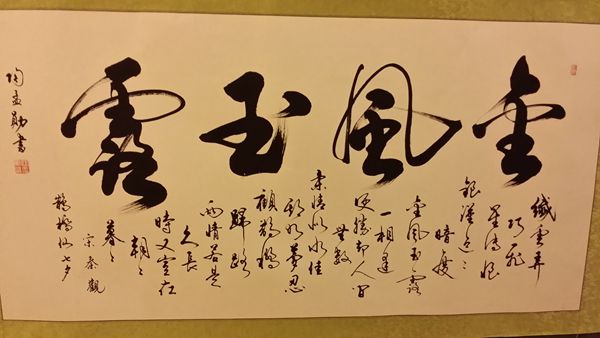 金風玉露
纖雲弄
巧飛
星傳恨
銀漢迢〻
暗度
金風玉露
一相逢
便勝却人间
無數
柔情似水佳
期如夢忍
顧鵲橋
歸路
两情若是
久長
時又豈在
朝〻
暮〻
宋秦觀
鵲橋仙七夕
陶孟勛書